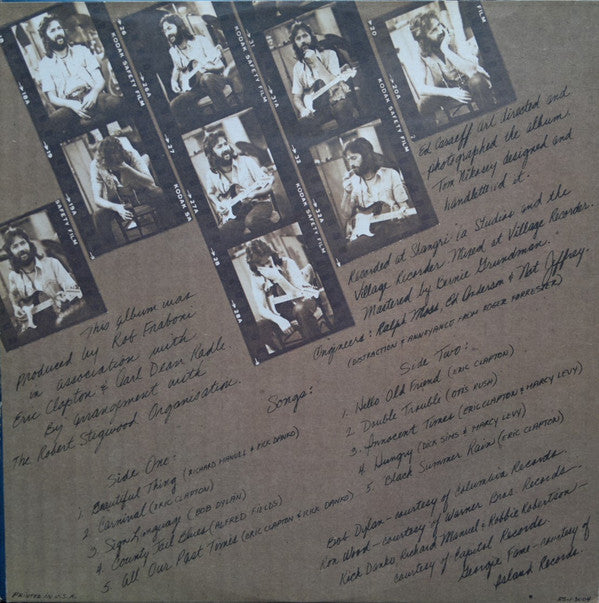 KODAK SAFETY FILM
KODAK SAFETY FILM
KODAK SAFETY FILM
SAFETY FILM
KODAK SAFETY FILM
KODAK SAFETY FILM
Ed Caraeff art directed and
photographed the album.
Tom Nikosey designed and
handlettered it.
Recorded at Shangri'la Studios and the
Village Recorder. Mixed at Village Recorder.
Mastered by Bernie Grundman.
Engineers: Ralph Moss, Ed Anderson & Nat Jeffrey.
(DISTRACTION & ANNOYANCE FROM EDGER FORRESTER)
This album was
Produced by Rob Fraboni
in association with
Eric Clapton & Carl Dean Radle.
By arrangement with
The Robert Stigwood Organisation.
Songs:
Side One:
1. Beautiful Thing (RICHARD MANUEL & RICK DANKO)
2. Carnival (ERIC CLAPTON)
3. Sign Language (BOB DYLAN)
4. County Jail Blues (ALFRED FIELDS)
5. All Our Past Times (ERIC CLAPTON & RICK DANKO)
Side Two:
1. Hello Old Friend (ERIC CLAPTON)
2. Double Trouble (OTIS RUSH)
3. Innocent Times (ERIC CLAPTON & MARCY LEVY)
4. Hungry (DICK SIMS & MARCY LEVY)
5. Black Summer Rain (ERIC CLAPTON)
Bob Dylan - courtesy of Columbia Records.
Ron Wood - courtesy of Warner Bros. Records -
Rick Danko, Richard Manuel & Robbie Robertson -
courtesy of Capitol Records.
Georgie Fame - courtesy of
Island Records.
PRINTED IN U.S.A.